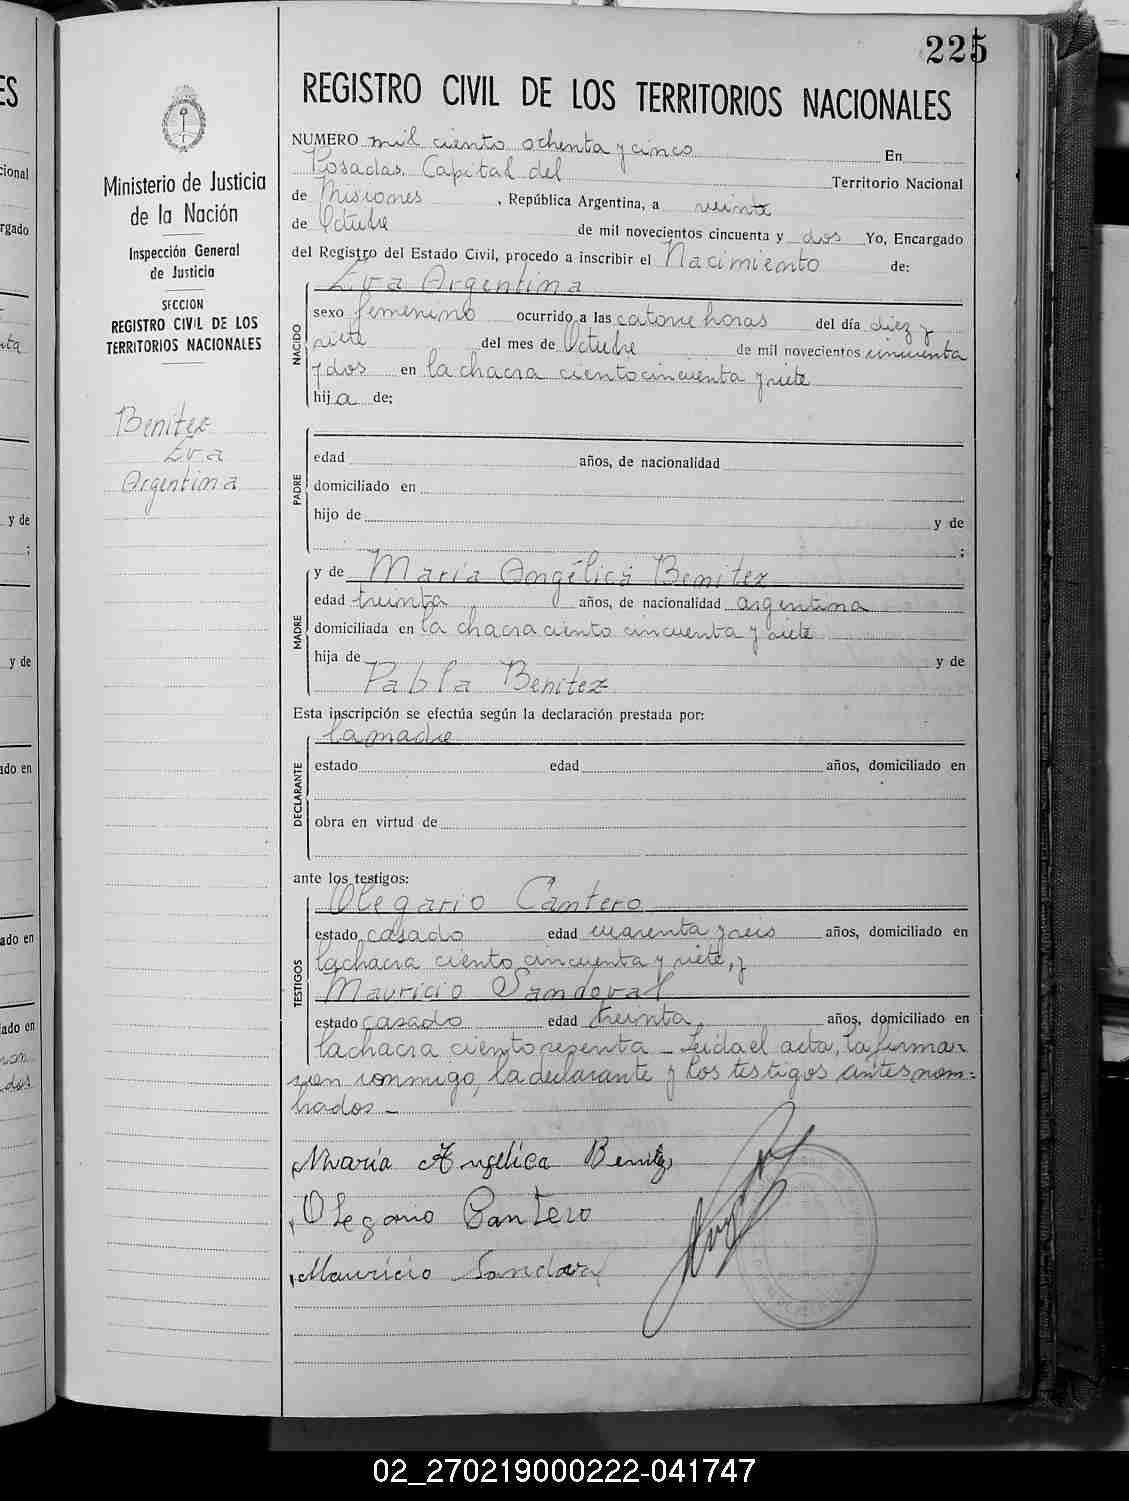 225
REGISTRO CIVIL DE LOS TERRITORIOS NACIONALES
Ministerio de Justicia
de la Nación
Inspección General
de Justicia
SECCION
REGISTRO CIVIL DE LOS
TERRITORIOS NACIONALES
Benitez
Eva
Argentina
NUMERO mil ciento ochenta y cinco En
Posadas. Capital del Territorio Nacional
de Misiones, República Argentina, a veinte
de Octubre de mil novecientos cincuenta y dos Yo, Encargado
del Registro del Estado Civil, procedo a inscribir el Nacimiento de:
Eva Argentina
NACIDO
sexo femenino ocurrido a las catorce horas del día diez y
siete del mes de Octubre de mil novecientos cincuenta
y dos en la chacra ciento cincuenta y siete
hija de:
PADRE
edad años, de nacionalidad
domiciliado en
hijo de y de
;
y de María Angélica Benitez
MADRE
edad treinta años, de nacionalidad argentina
domiciliada en la chacra ciento cincuenta y siete
hija de y de
Pabla Benitez
Esta inscripción se efectúa según la declaración prestada por:
la madre
DECLARANTE
estado edad años, domiciliado en
obra en virtud de
ante los testigos:
Olegario Cantero
TESTIGOS
estado casado edad cuarenta y seis años, domiciliado en
la chacra ciento cincuenta y siete, y
Mauricio Sandoval
estado casado edad treinta, años, domiciliado en
la chacra ciento sesenta _ Leida el acta, la firma-
ron conmigo, la declarante y los testigos antes nom=
brados _
María Angélica Benitez
Olegario Cantero
Mauricio Sandoval
ES
cional
rgado
y de
;
y de
ado en
ado en
ado en
dos
02_270219000222-041747